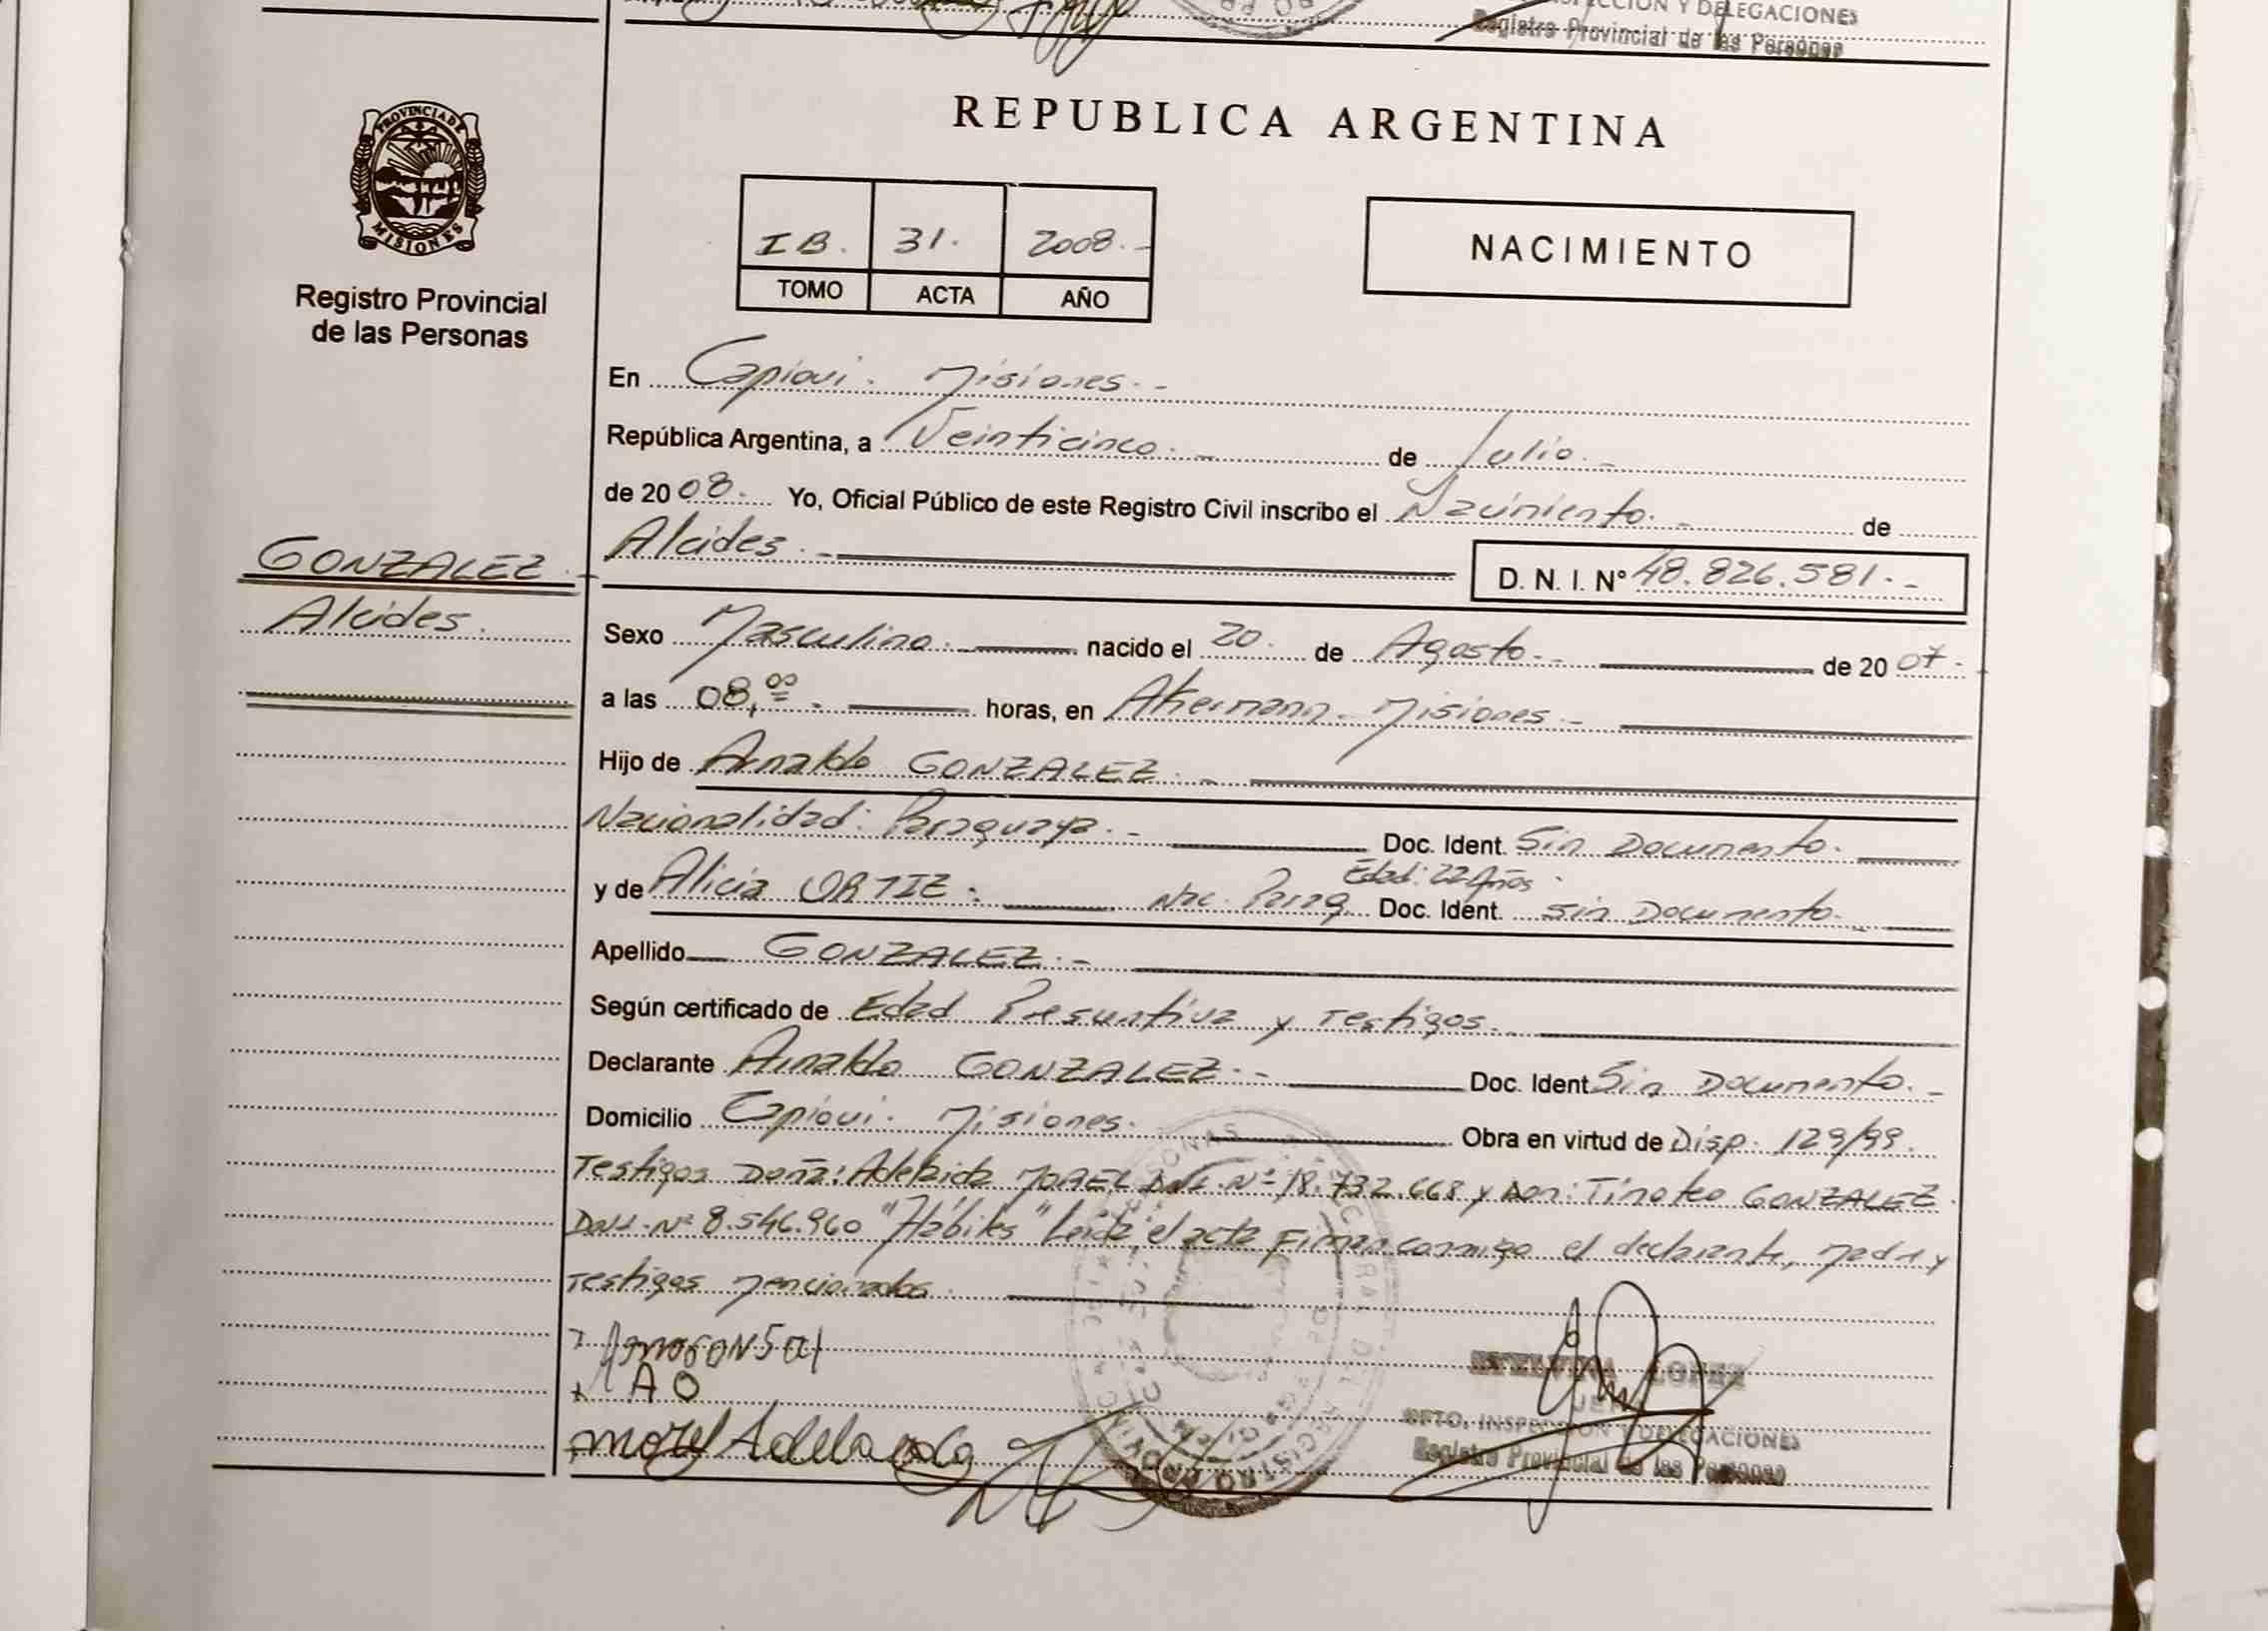 CCION Y DELEGACIONES
Registro Provincial de las Personas
PROVINCIA DE
MISIONES
Registro Provincial
de las Personas
REPUBLICA ARGENTINA
IB. 31. 2008.-
TOMO ACTA AÑO
NACIMIENTO
En Capioví. Misiones.-
República Argentina, a Veinticinco.- de Julio.-
de 2008. Yo, Oficial Público de este Registro Civil inscribo el Nacimiento.- de
GONZALEZ.-
Alcides.
Alcides.-
D. N. I. Nº 48.826.581.-
Sexo Masculino.- nacido el 20. de Agosto.- de 2007.-
a las 08,00.- horas, en Akermann. Misiones.-
Hijo de Arnaldo GONZALEZ.-
Nacionalidad: Paraguaya.- Doc. Ident. Sin Documento.-
Edad: 22 Años.
y de Alicia ORTIZ.- Nac. Parag. Doc. Ident. Sin Documento.-
Apellido GONZALEZ.-
Según certificado de Edad Presuntiva y Testigos.-
Declarante Arnaldo GONZALEZ.- Doc. Ident Sin Documento.-
Domicilio Capioví. Misiones. Obra en virtud de Disp. 129/99.
Testigos Doña: Adelaida MOREL DNI. Nº 18.732.668 y Don: Timoteo GONZALEZ.
DNI. Nº 8.546.960 "Hábiles" Leída el acta Firman conmigo el declarante, madre y
Testigos mencionados.
A O
LOPEZ
JEFE
DPTO. INSPECCION Y DELEGACIONES
morel Adelaida
Registro Provincial de las Personas